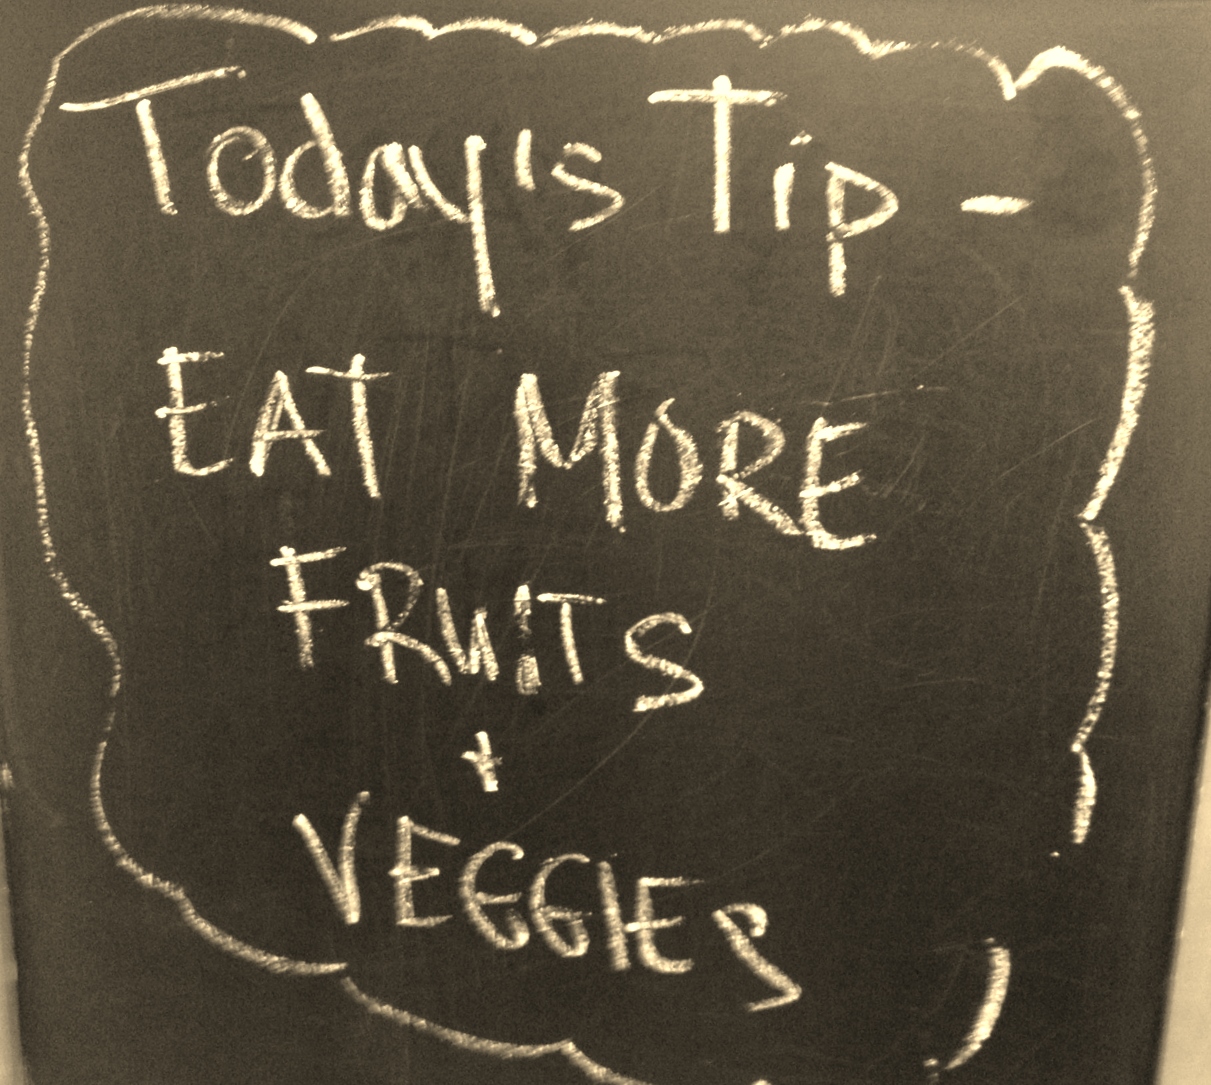 Today's Tip -
EAT MORE
FRUITS
+
VEGGIES